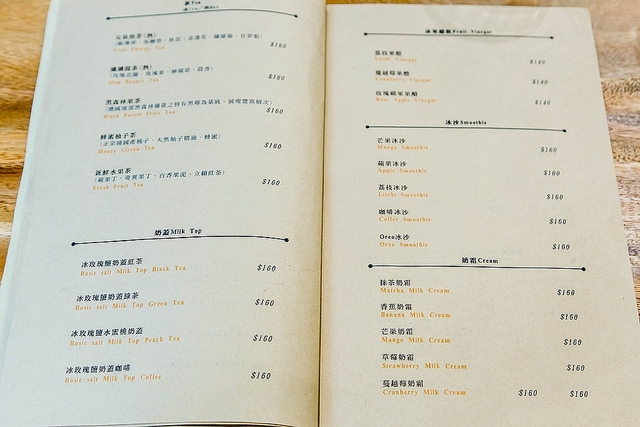 茶Tea
冰Ice/熱Hot
元氣能茶(熱)
$160
Vital Energy Tea
纖纖窈茶(熱)
(玫瑰花瓣、玫瑰果、檸檬草、茴香)
$160
Slim Beauty Tea
黑森林果茶
$160
Black Forest Fruit Tea
蜂蜜柚子茶
(正宗韓國產柚子、天然柚子精油、蜂蜜)
$160
Honey Citron Tea
新鮮水果茶
(蘋果丁、奇異果丁、百香果泥、立頓紅茶)
$160
Fresh Fruit Tea
奶蓋Milk Top
冰玫瑰鹽奶蓋紅茶
$160
Rosie salt Milk Top Black Tea
冰玫瑰鹽奶蓋綠茶
$160
Rosie salt Milk Top Green Tea
冰玫瑰鹽水蜜桃奶蓋
$160
Rosie salt Milk Top Peach Tea
冰玫瑰鹽奶蓋咖啡
$160
Rosie salt Milk Top Coffee
Fruit Vinegar
荔枝果醋
$140
Litchi Vinegar
蔓越莓果醋
$140
Cranberry Vinegar
玫瑰蘋果果醋
$140
Rose Apple Vinegar
冰沙Smoothie
芒果冰沙
$160
Mango Smoothie
蘋果冰沙
$160
Apple Smoothie
荔枝冰沙
$160
Litchi Smoothie
咖啡冰沙
$160
Coffee Smoothie
Oreo冰沙
$160
Oreo Smoothie
奶霜Cream
抹茶奶霜
$160
Matcha Milk Cream
香蕉奶霜
$160
Banana Milk Cream
芒果奶霜
$160
Mango Milk Cream
草莓奶霜
$160
Strawberry Milk Cream
蔓越莓奶霜
$160 $160
Cranberry Milk Cream